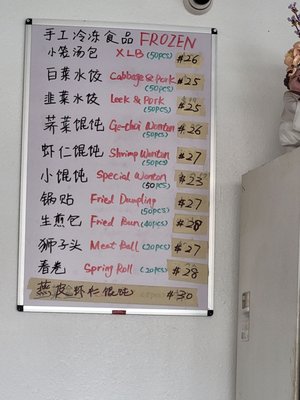 手工冷冻食品 FROZEN
小笼汤包 XLB (50pcs) $26
白菜水饺 Cabbage & pork (50pcs) $25
韭菜水饺 Leek & Pork (50pcs) $25
荠菜馄饨 Ge-thai Wonton (50pcs) $26
虾仁馄饨 Shrimp Wonton (50pcs) $27
小馄饨 Special Wonton (50pcs) $23
锅贴 Fried Dumpling (50pcs) $27
生煎包 Fried Bun (40pcs) $28
狮子头 Meat Ball (20pcs) $27
春卷 Spring Roll (20pcs) $28
燕皮虾仁馄饨 $30